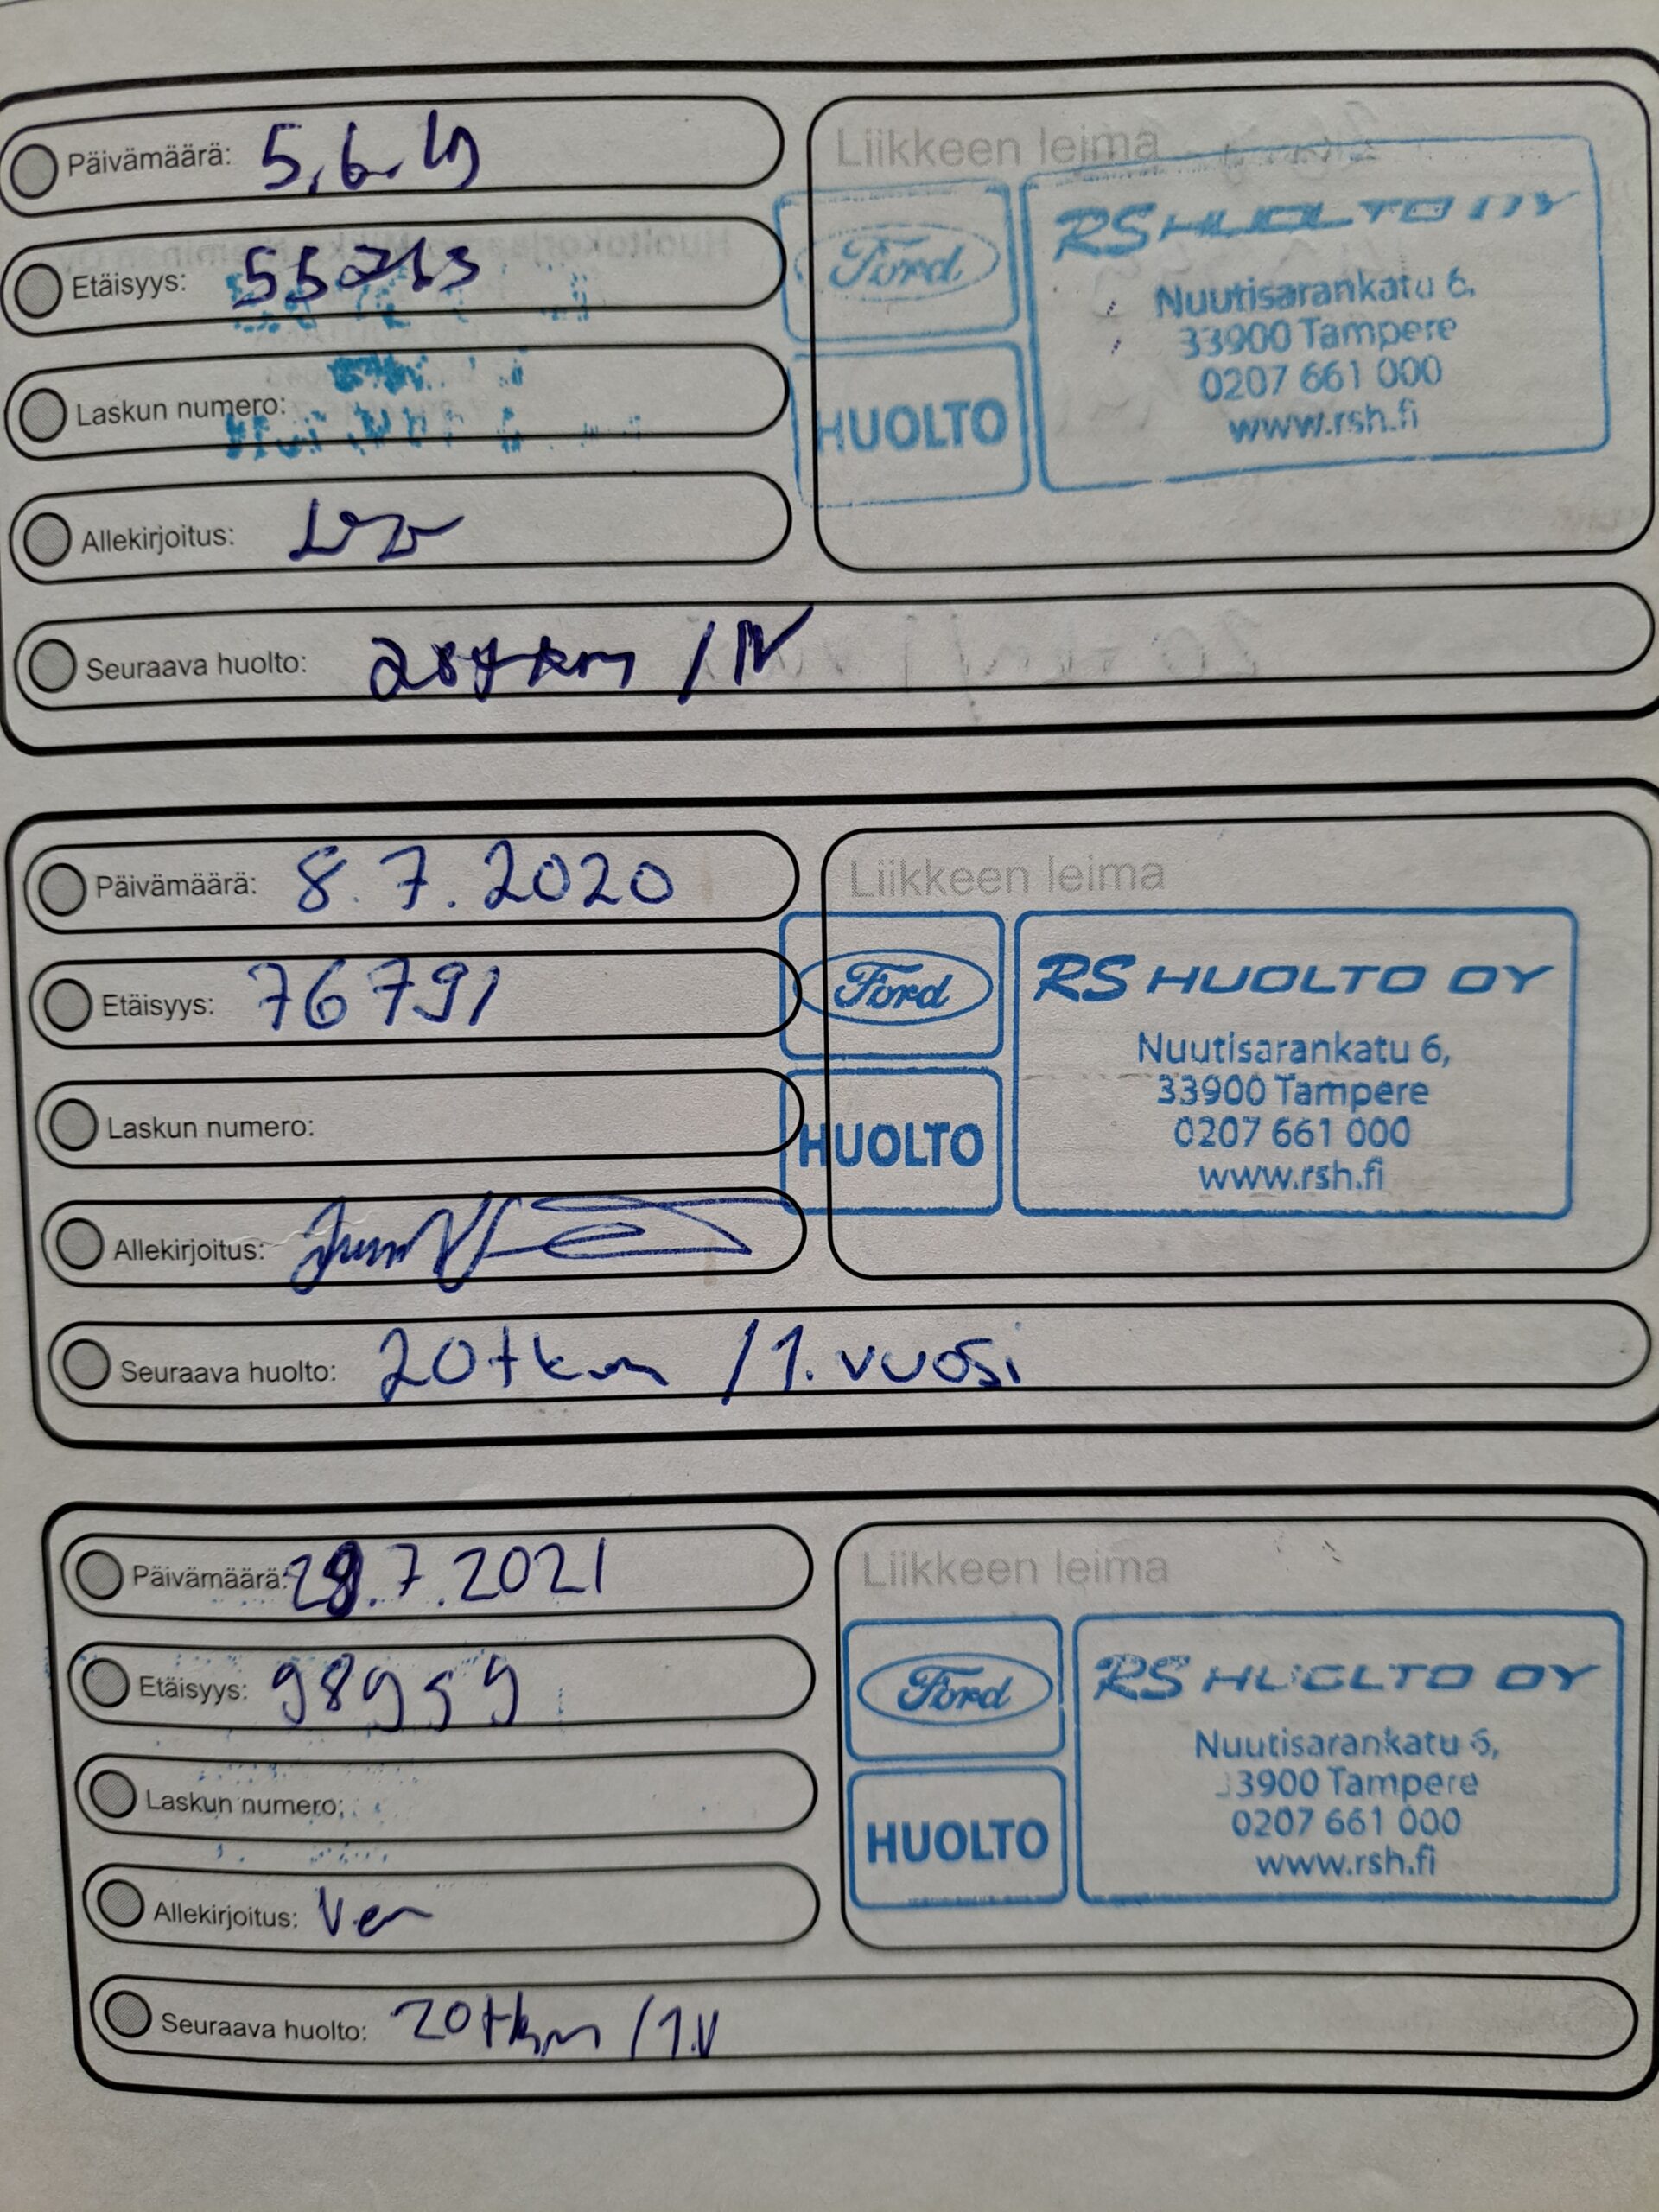 Päivämäärä: 5.6.19
Liikkeen leima
Etäisyys:
Ford
RS HUOLTO OY
Nuutisarankatu 6,
33900 Tampere
0207 661 000
www.rsh.fi
Laskun numero:
HUOLTO
Allekirjoitus:
Seuraava huolto: 20tkm / 1V
Päivämäärä: 8.7.2020
Liikkeen leima
Etäisyys: 76791
Ford
RS HUOLTO OY
Nuutisarankatu 6,
33900 Tampere
0207 661 000
www.rsh.fi
Laskun numero:
HUOLTO
Allekirjoitus:
Seuraava huolto: 20tkm / 1. vuosi
Päivämäärä: 29.7.2021
Liikkeen leima
Etäisyys: 98959
Ford
RS HUOLTO OY
Nuutisarankatu 6,
33900 Tampere
0207 661 000
www.rsh.fi
Laskun numero:
HUOLTO
Allekirjoitus:
Seuraava huolto: 20tkm / 1.V